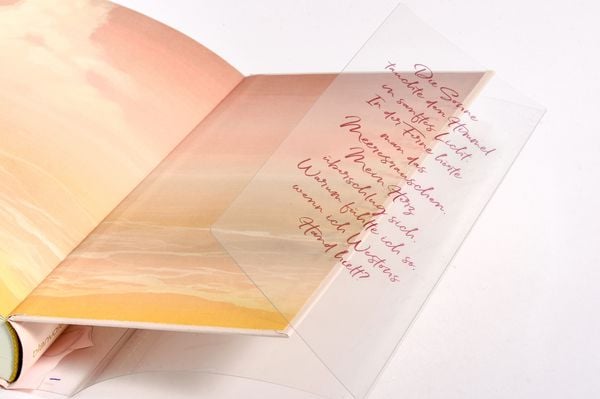 Die Sonne
tauchte den Himmel
in sanftes Licht.
In der Ferne hörte
man das
Meeresrauschen.
Mein Herz
überschlug sich.
Warum fühlte ich so,
wenn ich Westons
Hand hielt?